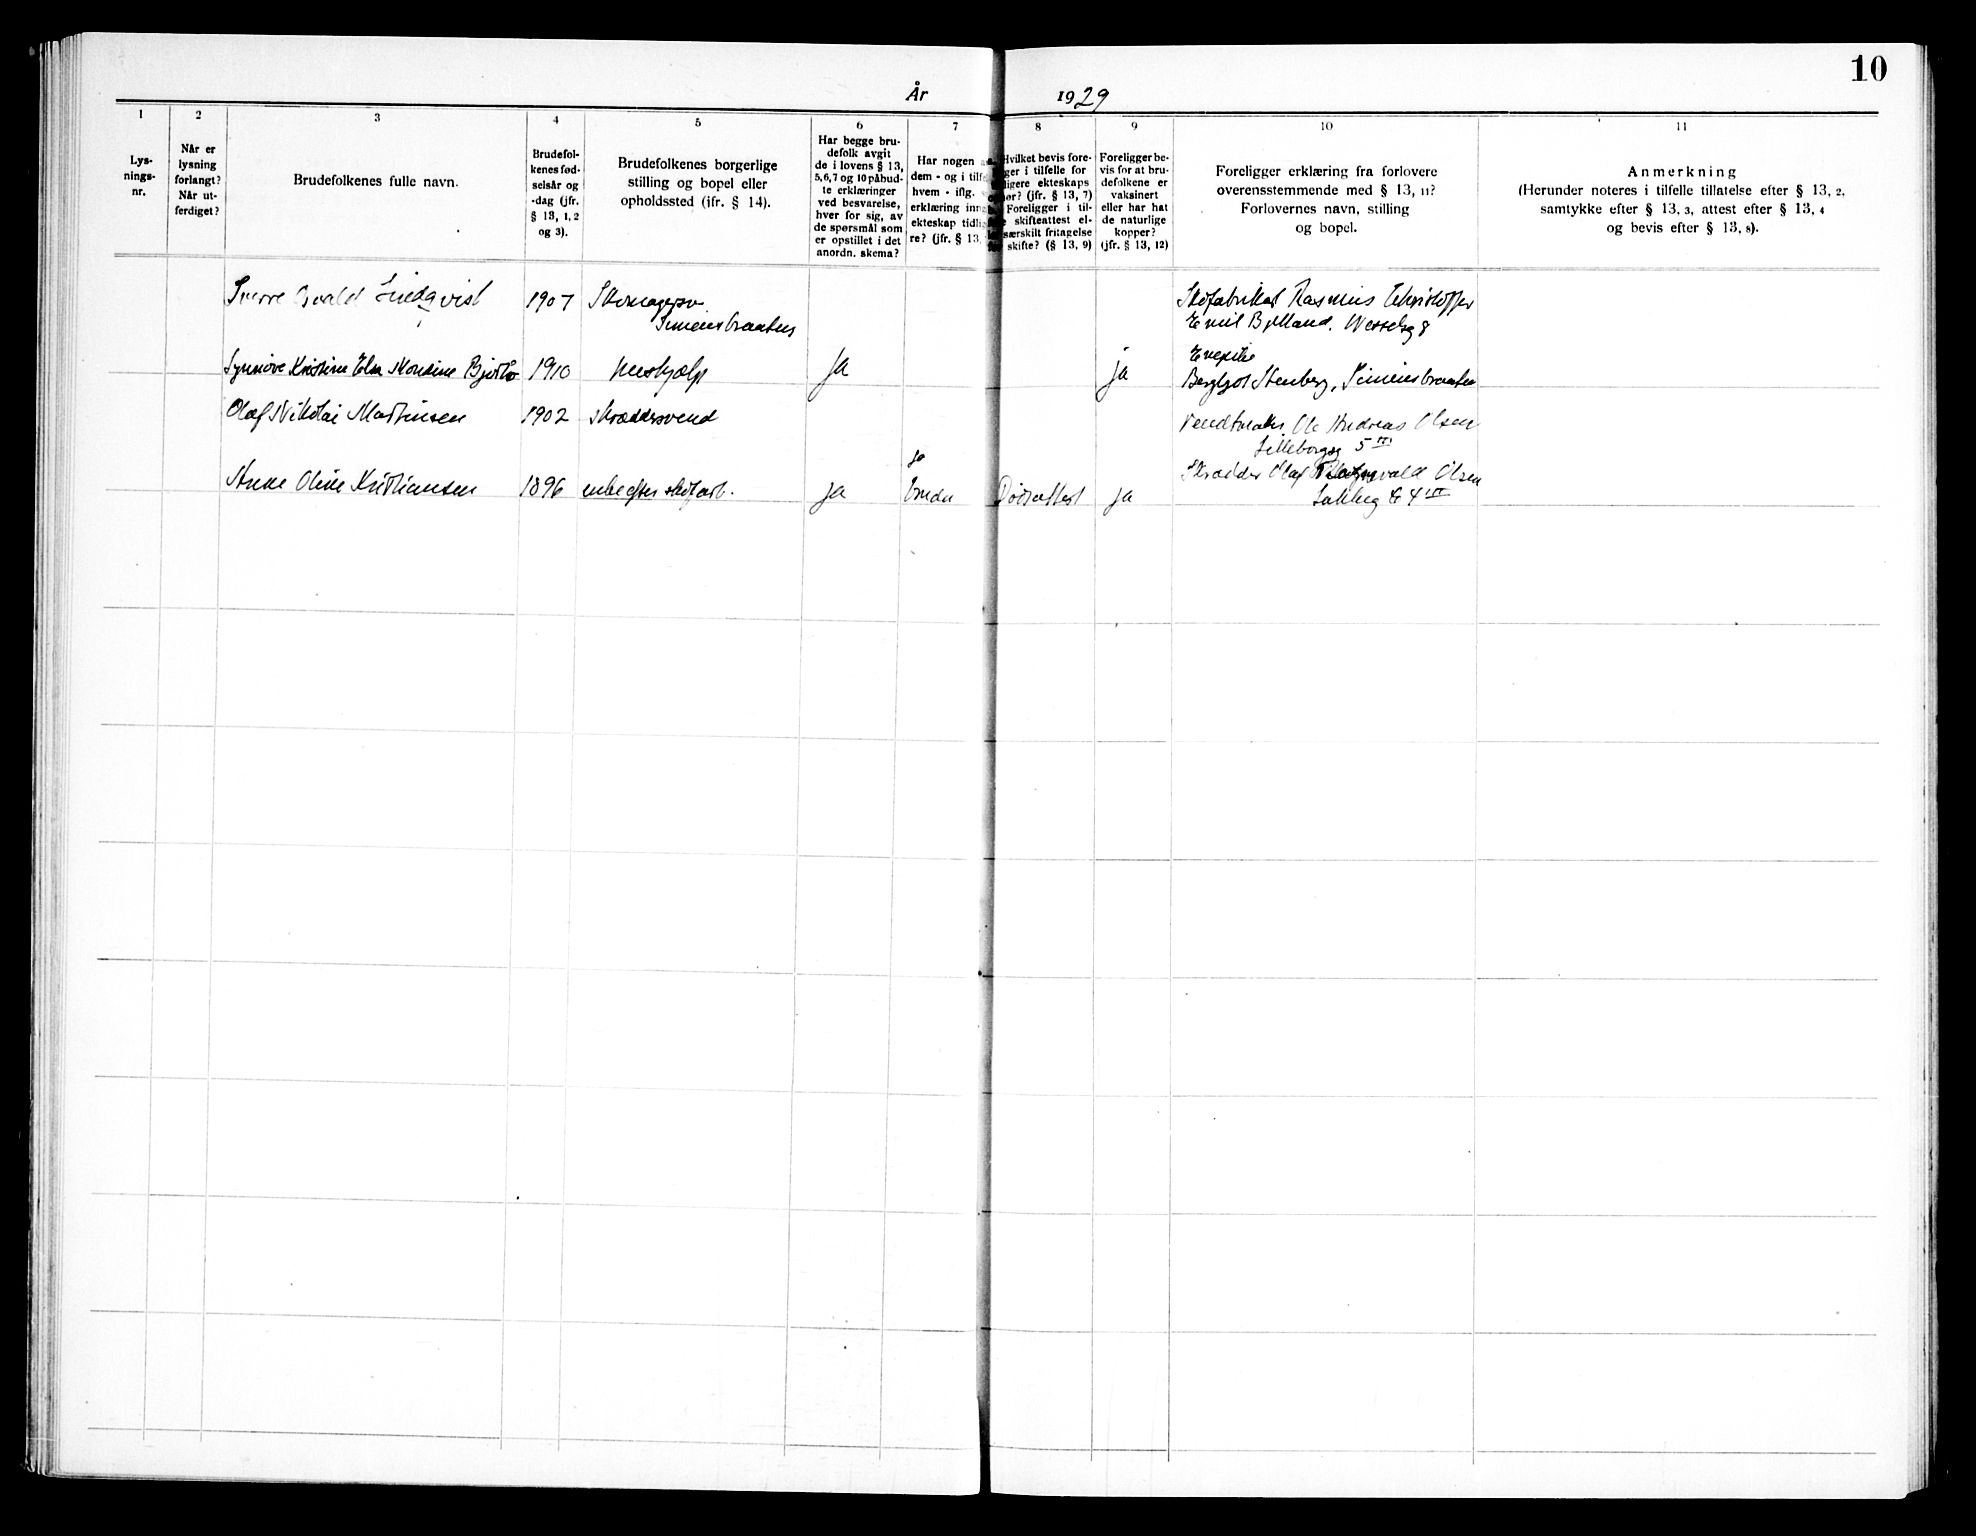 10
År 1929
1 2 3 4 5 6 7 8 9 10 11
Lys-
nings-
nr.
Når er
lysning
forlangt?
Når ut-
ferdiget?
Brudefolkenes fulle navn.
Brudefol-
kenes fød-
selsår og
-dag (jfr.
§ 13, 1, 2
og 3).
Brudefolkenes borgerlige
stilling og bopel eller
opholdssted (jfr. § 14).
Har begge bru-
defolk avgit
de i lovens § 13,
5,6,7 og 10 påbud-
te erklæringer
ved besvarelse,
hver for sig, av
de spørsmål som
er opstillet i det
anordn. skema?
Har nogen
dem - og i tilf
hvem - iflg.
erklæring inn
ekteskap tidl
re? (jfr. § 13,
Hvilket bevis fore-
ger i tilfelle for
ligere ekteskaps
ør? (jfr. § 13, 7)
Foreligger i til-
skifteattest el-
særskilt fritagelse
skifte? (§ 13, 9)
Foreligger be-
vis for at bru-
defolkene er
vaksinert
eller har hat
de naturlige
kopper?
(jfr. § 13, 12)
Foreligger erklæring fra forlovere
overensstemmende med § 13, 11?
Forlovernes navn, stilling
og bopel.
Anmerkning
(Herunder noteres i tilfelle tillatelse efter § 13, 2,
samtykke efter § 13, 3, attest efter § 13, 4
og bevis efter § 13, 8).
Sverre Osvald Lindqvist 1907 Skomagersv Skofabrikat Rasmus Christoffer
Simensbraaten Emil Bylland. Wesselsg 8
Synnøve Kristine Elsa 1910 hushjælp Ja ja
Bergljot Stenberg, Simensbraaten
Olaf Nikolai Martinsen 1902 skræddersvend Ole Andreas Olsen
Lilleborgg 5 III
ja
Anne Oline Kristiansen 1896 enke efter skofarb. ja bruden Dødsattest ja Skrædder Olaf Olsen
4 III